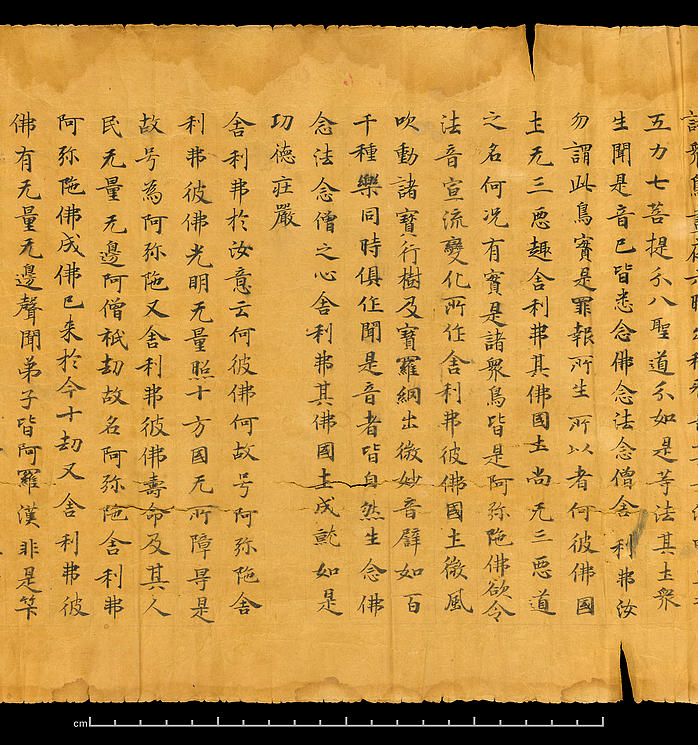 五力七菩提分八聖道分如是等法其土衆
生聞是音已皆悉念佛念法念僧舍利弗汝
勿謂此鳥實是罪報所生所以者何彼佛國
土无三惡趣舍利弗其佛國土尚无三惡道
之名何况有實是諸衆鳥皆是阿弥陁佛欲令
法音宣流變化所作舍利弗彼佛國土微風
吹動諸寶行樹及寶羅網出微妙音辟如百
千種樂同時俱作聞是音者皆自然生念佛
念法念僧之心舍利弗其佛國土成就如是
功德莊嚴
舍利弗於汝意云何彼佛何故号阿弥陁舍
利弗彼佛光明无量照十方國无所障㝵是
故号為阿弥陁又舍利弗彼佛壽命及其人
民无量无邊阿僧祇劫故名阿弥陁舍利弗
阿弥陁佛成佛已来於今十劫又舍利弗彼
佛有无量无邊聲聞弟子皆阿羅漢非是筭